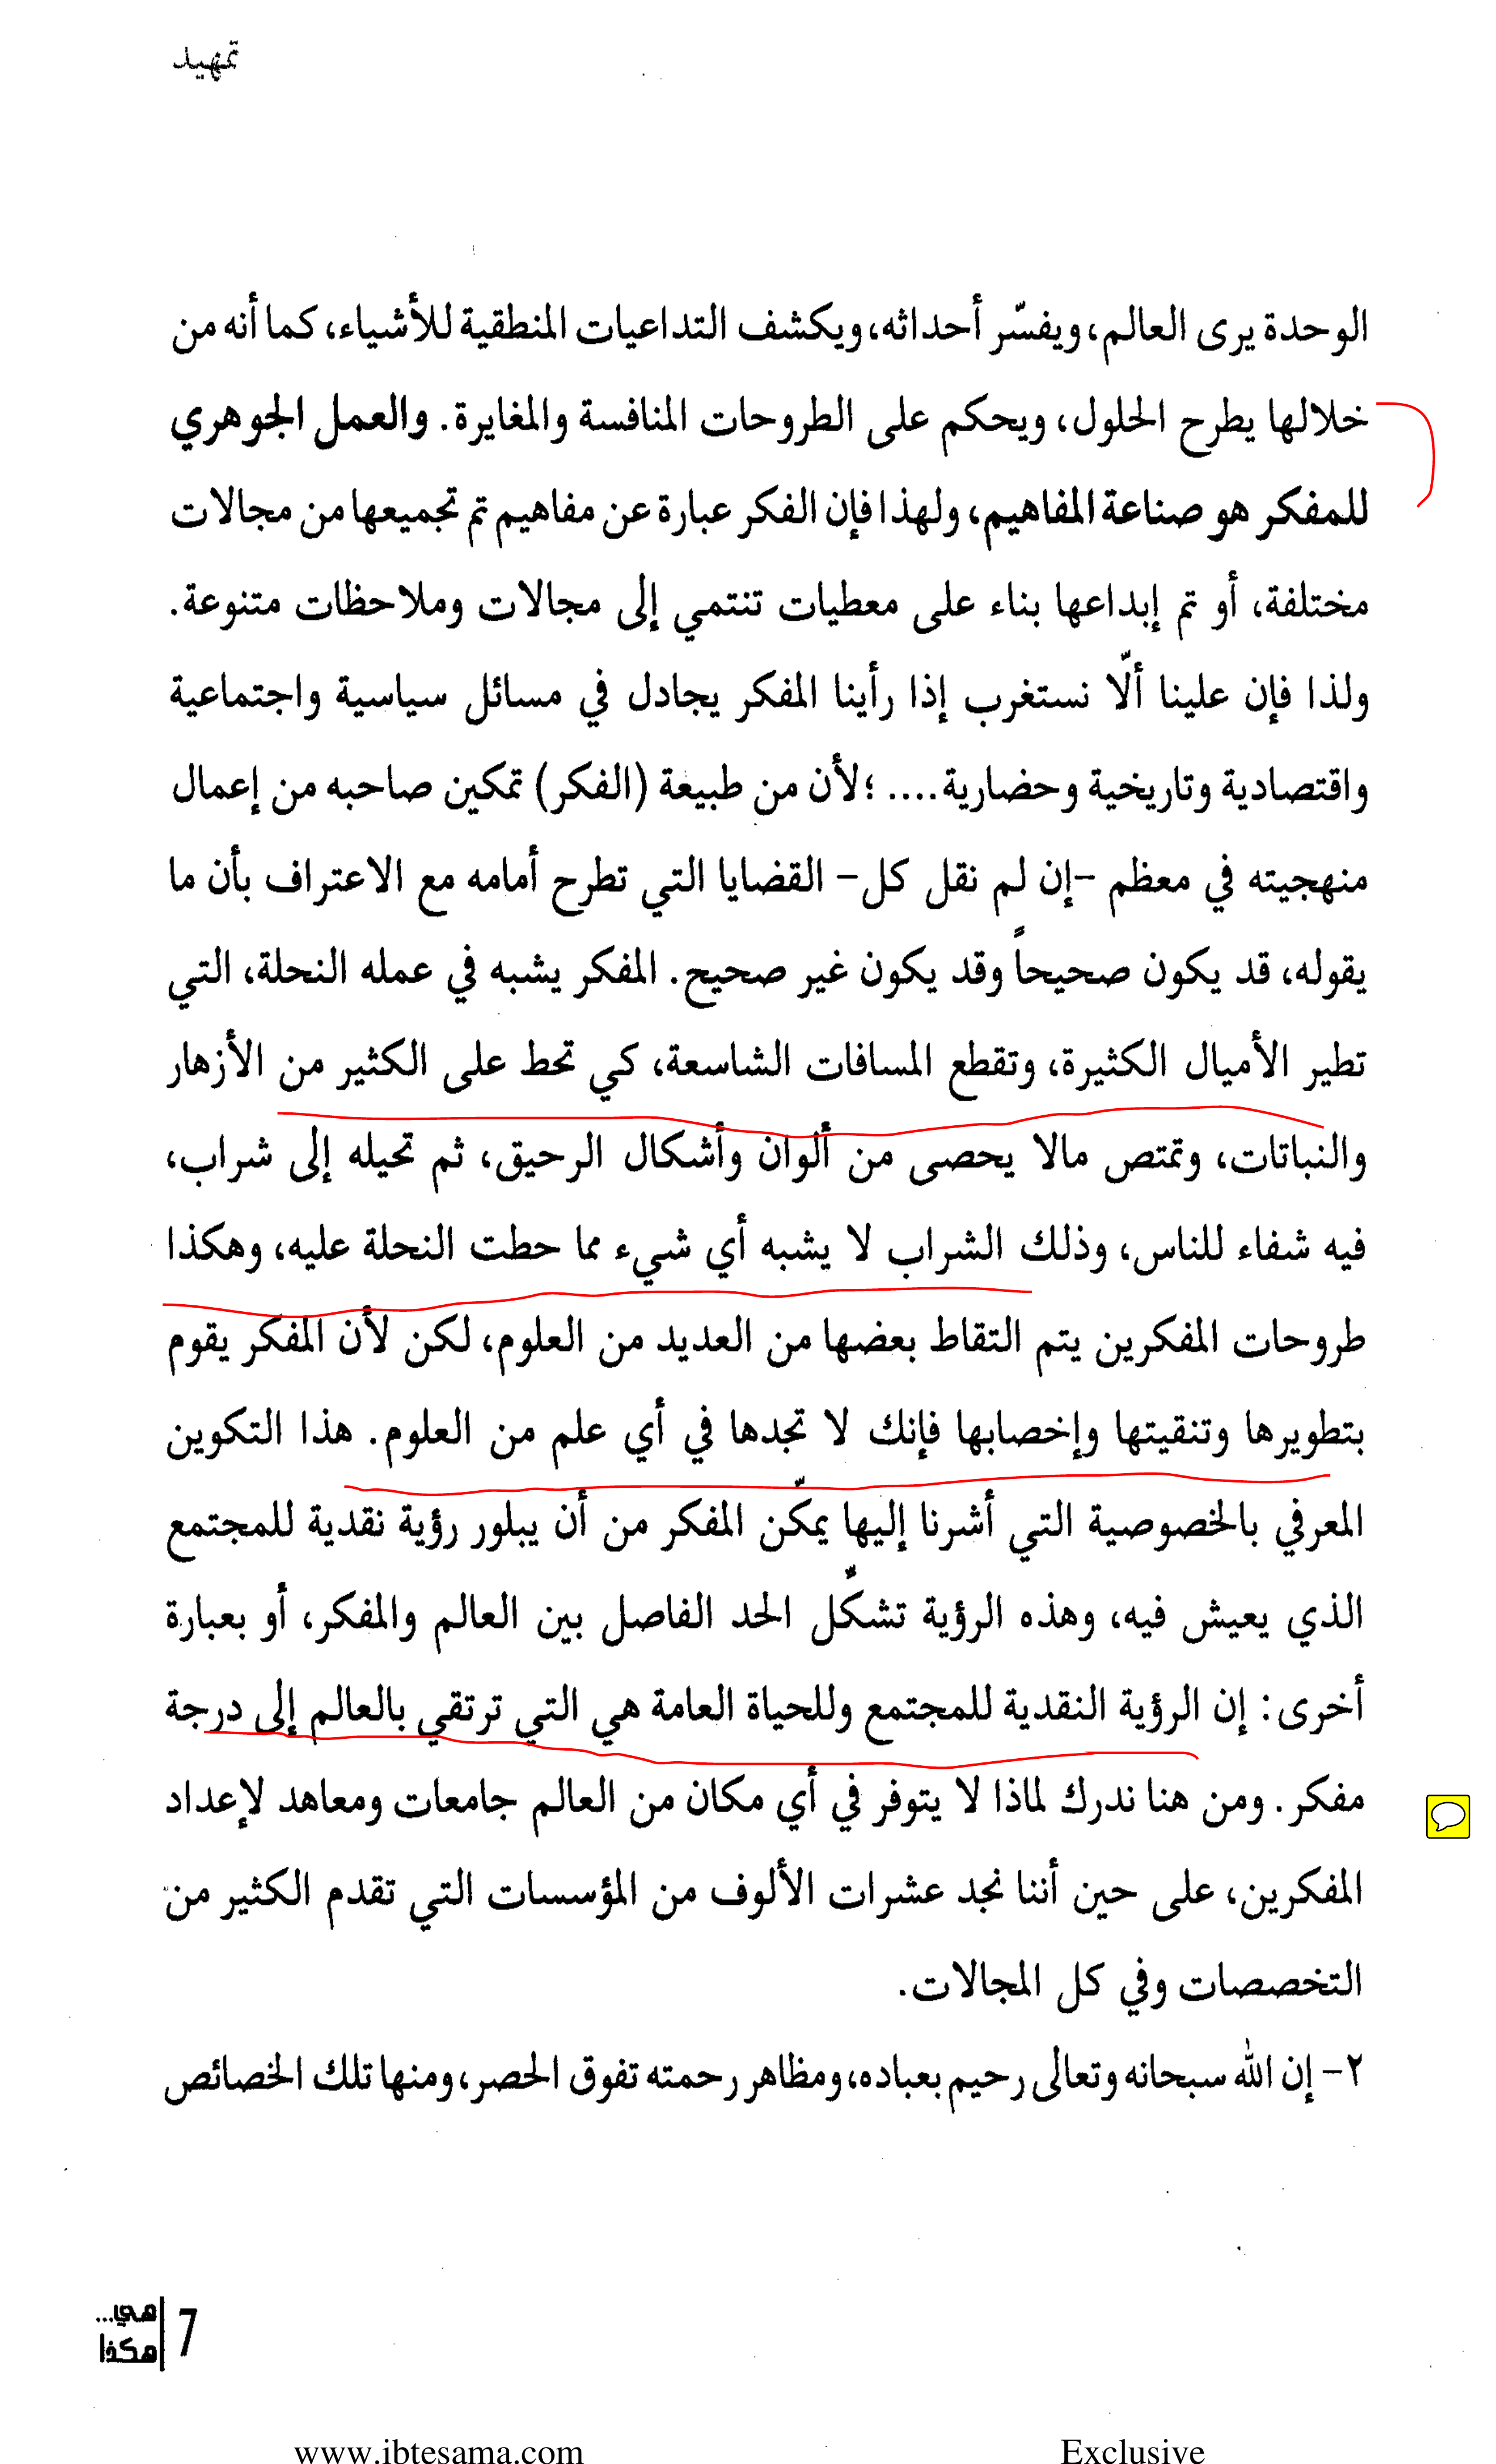 تمهيد
الوحدة يرى العالم، ويفسّر أحداثه، ويكشف التداعيات المنطقية للأشياء، كما أنه من
خلالها يطرح الحلول، ويحكم على الطروحات المنافسة والمغايرة. والعمل الجوهري
للمفكر هو صناعة المفاهيم، ولهذا فإن الفكر عبارة عن مفاهيم تم تجميعها من مجالات
مختلفة، أو تم إبداعها بناء على معطيات تنتمي إلى مجالات وملاحظات متنوعة.
ولذا فإن علينا ألّا نستغرب إذا رأينا المفكر يجادل في مسائل سياسية واجتماعية
واقتصادية وتاريخية وحضارية.... ؛لأن من طبيعة (الفكر) تمكين صاحبه من إعمال
منهجيته في معظم -إن لم نقل كل- القضايا التي تطرح أمامه مع الاعتراف بأن ما
يقوله، قد يكون صحيحاً وقد يكون غير صحيح. المفكر يشبه في عمله النحلة، التي
تطير الأميال الكثيرة، وتقطع المسافات الشاسعة، كي تحط على الكثير من الأزهار
والنباتات، وتمتص مالا يحصى من ألوان وأشكال الرحيق، ثم تحيله إلى شراب،
فيه شفاء للناس، وذلك الشراب لا يشبه أي شيء مما حطت النحلة عليه، وهكذا
طروحات المفكرين يتم التقاط بعضها من العديد من العلوم، لكن لأن المفكر يقوم
بتطويرها وتنقيتها وإخصابها فإنك لا تجدها في أي علم من العلوم. هذا التكوين
المعرفي بالخصوصية التي أشرنا إليها يمكّن المفكر من أن يبلور رؤية نقدية للمجتمع
الذي يعيش فيه، وهذه الرؤية تشكّل الحد الفاصل بين العالم والمفكر، أو بعبارة
أخرى: إن الرؤية النقدية للمجتمع وللحياة العامة هي التي ترتقي بالعالم إلى درجة
مفكر. ومن هنا ندرك لماذا لا يتوفر في أي مكان من العالم جامعات ومعاهد لإعداد
المفكرين، على حين أننا نجد عشرات الألوف من المؤسسات التي تقدم الكثير من
التخصصات وفي كل المجالات.
٢- إن الله سبحانه وتعالى رحيم بعباده، ومظاهر رحمته تفوق الحصر، ومنها تلك الخصائص
هي...
هكذا
7
www.ibtesama.com Exclusive